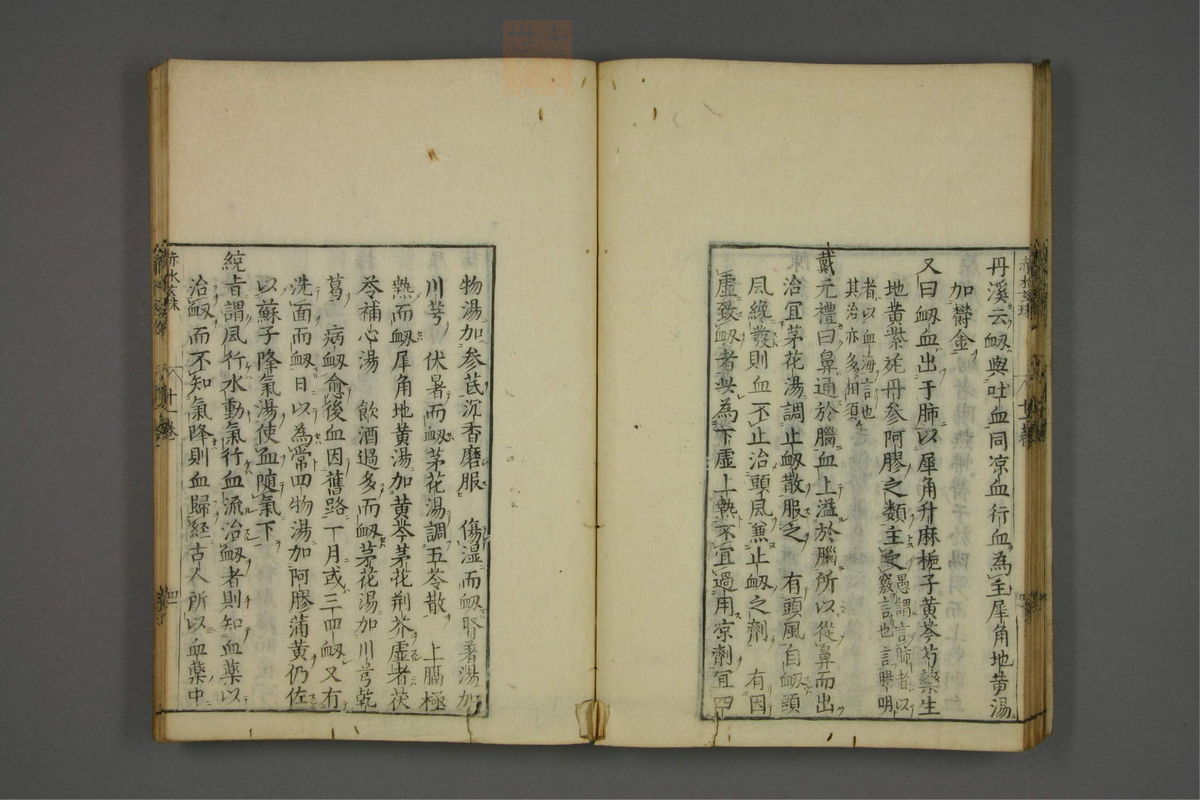 丹溪云衂與吐血同凉血行血為主犀角地黄湯
加欝金
又曰衂血出于肺以犀角升麻梔子黄芩芍藥生
地黄紫菀丹参阿膠之類主之愚謂言肺者以竅言也言陽明
者以血海言也其治亦多相須
戴元禮曰鼻通於腦血上溢於腦所以從鼻而出
治宜茅花湯調止衂散服之 有頭風自衂頭
風纔發則血不止治頭風兼止衂之劑 有因
虛致衂者為下虛上熱不宜過用凉劑宜四
物湯加参芪沉香磨服 傷濕而衂腎著湯加
川芎 伏暑而衂茅花湯調五苓散 上膈極
熱而衂犀角地黄湯加黄芩茅花荆芥虛者茯
苓補心湯 飲酒過多而衂茅花湯加川芎乾
葛 病衂愈後血因舊路一月或三四衂又有
洗面而衂日以為常四物湯加阿膠蒲黄仍佐
以蘇子降氣湯使血隨氣下
統旨謂風行水動氣行血流治衂者則知血藥以
治衂而不知氣降則血歸経古人所以血藥中
赤水玄珠
十一卷
四